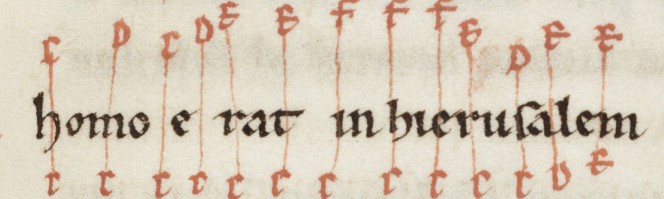 c D c D E E F F F E D E E
homo e rat in hierusalem
c c c c c c c c c c c D E